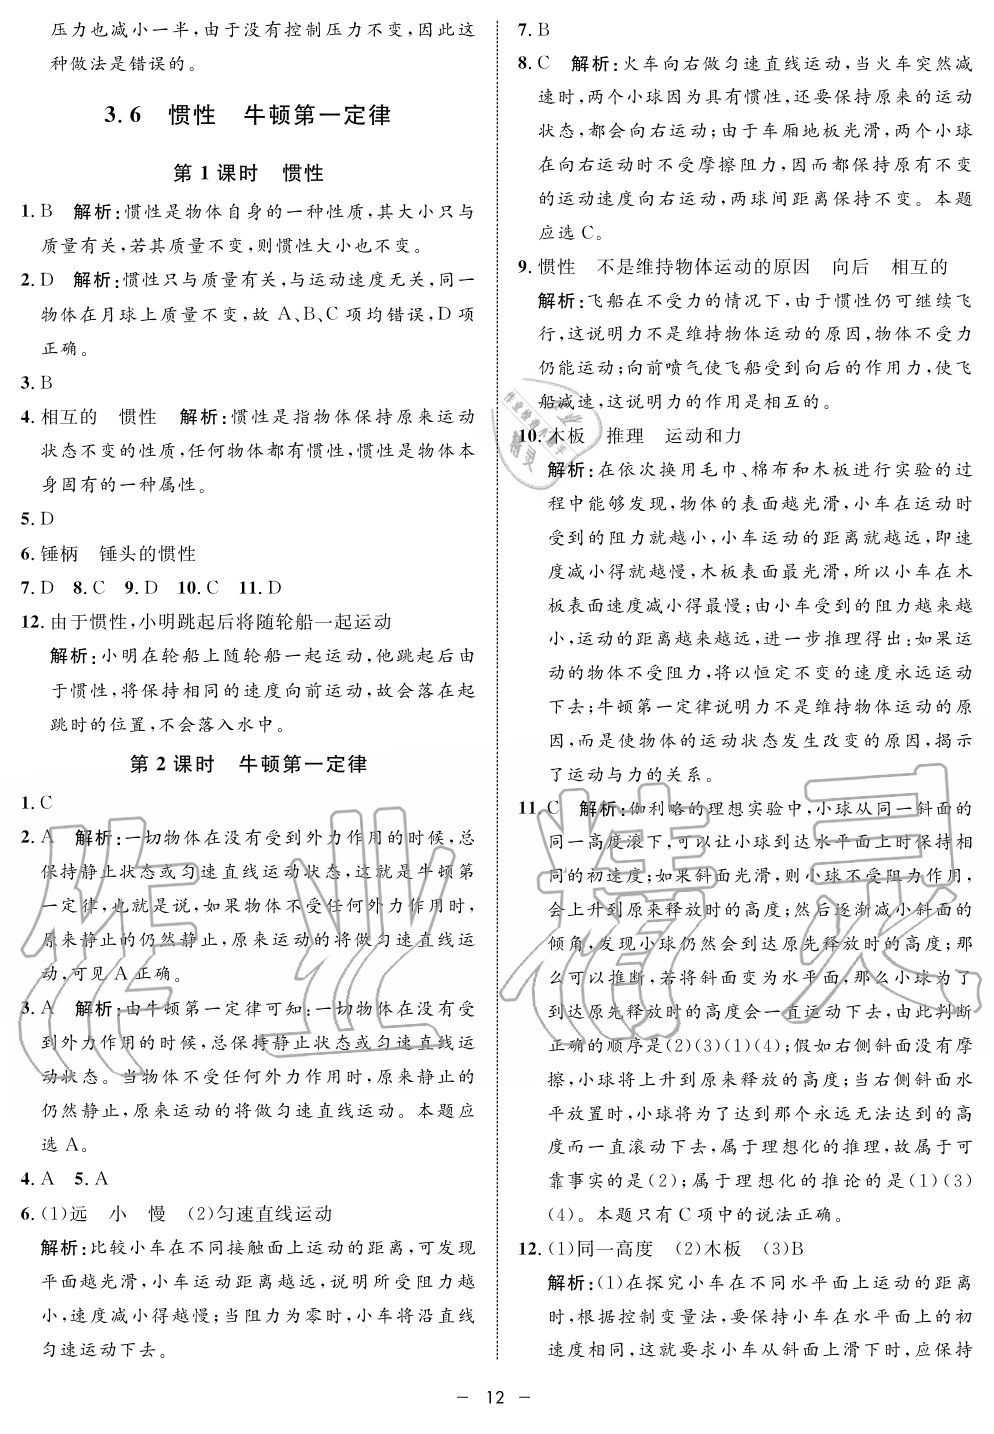 压力也减小一半，由于没有控制压力不变，因此这
种做法是错误的。
3.6 惯性 牛顿第一定律
第1课时 惯性
1. B 解析：惯性是物体自身的一种性质，其大小只与
质量有关，若其质量不变，则惯性大小也不变。
2. D 解析：惯性只与质量有关，与运动速度无关，同一
物体在月球上质量不变，故A、B、C项均错误，D项
正确。
3. B
4. 相互的 惯性 解析：惯性是指物体保持原来运动
状态不变的性质，任何物体都有惯性，惯性是物体本
身固有的一种属性。
5. D
6. 锤柄 锤头的惯性
7. D 8. C 9. D 10. C 11. D
12. 由于惯性，小明跳起后将随轮船一起运动
解析：小明在轮船上随轮船一起运动，他跳起后由
于惯性，将保持相同的速度向前运动，故会落在起
跳时的位置，不会落入水中。
第2课时 牛顿第一定律
1. C
2. A 解析：一切物体在没有受到外力作用的时候，总
保持静止状态或匀速直线运动状态，这就是牛顿第
一定律，也就是说，如果物体不受任何外力作用时，
原来静止的仍然静止，原来运动的将做匀速直线运
动，可见A正确。
3. A 解析：由牛顿第一定律可知：一切物体在没有受
到外力作用的时候，总保持静止状态或匀速直线运
动状态。当物体不受任何外力作用时，原来静止的
仍然静止，原来运动的将做匀速直线运动。本题应
选A。
4. A 5. A
6. (1)远 小 慢 (2)匀速直线运动
解析：比较小车在不同接触面上运动的距离，可发现
平面越光滑，小车运动距离越远，说明所受阻力越
小，速度减小得越慢；当阻力为零时，小车将沿直线
匀速运动下去。
7. B
8. C 解析：火车向右做匀速直线运动，当火车突然减
速时，两个小球因为具有惯性，还要保持原来的运动
状态，都会向右运动；由于车厢地板光滑，两个小球
在向右运动时不受摩擦阻力，因而都保持原有不变
的运动速度向右运动，两球间距离保持不变。本题
应选C。
9. 惯性 不是维持物体运动的原因 向后 相互的
解析：飞船在不受力的情况下，由于惯性仍可继续飞
行，这说明力不是维持物体运动的原因，物体不受力
仍能运动；向前喷气使飞船受到向后的作用力，使飞
船减速，这说明力的作用是相互的。
10. 木板 推理 运动和力
解析：在依次换用毛巾、棉布和木板进行实验的过
程中能够发现，物体的表面越光滑，小车在运动时
受到的阻力就越小，小车运动的距离就越远，即速
度减小得就越慢，木板表面最光滑，所以小车在木
板表面速度减小得最慢；由小车受到的阻力越来越
小，运动的距离越来越远，进一步推理得出：如果运
动的物体不受阻力，将以恒定不变的速度永远运动
下去；牛顿第一定律说明力不是维持物体运动的原
因，而是使物体的运动状态发生改变的原因，揭示
了运动与力的关系。
11. C 解析：伽利略的理想实验中，小球从同一斜面的
同一高度滚下，可以让小球到达水平面上时保持相
同的初速度；如果斜面光滑，则小球不受阻力作用，
会上升到原来释放时的高度；然后逐渐减小斜面的
倾角，发现小球仍然会到达原先释放时的高度；那
么可以推断，若将斜面变为水平面，那么小球为了
到达原先释放时的高度会一直运动下去，由此判断
正确的顺序是(2)(3)(1)(4)；假如右侧斜面没有摩
擦，小球将上升到原来释放的高度；当右侧斜面水
平放置时，小球将为了达到那个永远无法达到的高
度而一直滚动下去，属于理想化的推理，故属于可
靠事实的是(2)；属于理想化的推论的是(1)(3)
(4)。本题只有C项中的说法正确。
12. (1)同一高度 (2)木板 (3)B
解析：(1)在探究小车在不同水平面上运动的距离
时，根据控制变量法，要保持小车在水平面上的初
速度相同，这就要求小车从斜面上滑下时，应保持
作业精灵
— 12 —